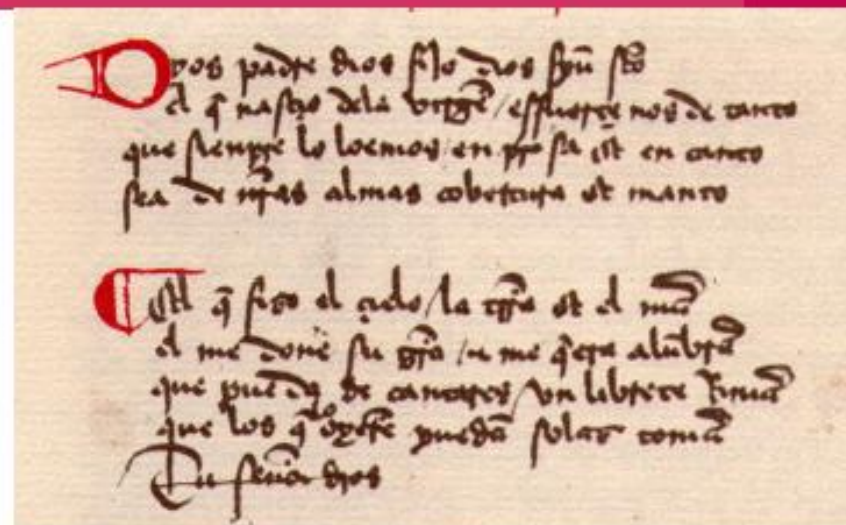 Dyos padre dios fijo dios spũ scõ
el q̃ nasçio dela virgẽ / esfuerçe nos de tanto
que sienpre lo loemos en prosa et en canto
sea de nr̃as almas cobertura et manto
El q̃ fizo el çielo / la trr̃a et el mar̃
el me done su gr̃a / e me q̃era alũbrar̃
que pueda de cantares / vn librete Rimar̃
que los q̃ lo oyerẽ puedã solaz tomar̃
Tu señor dios